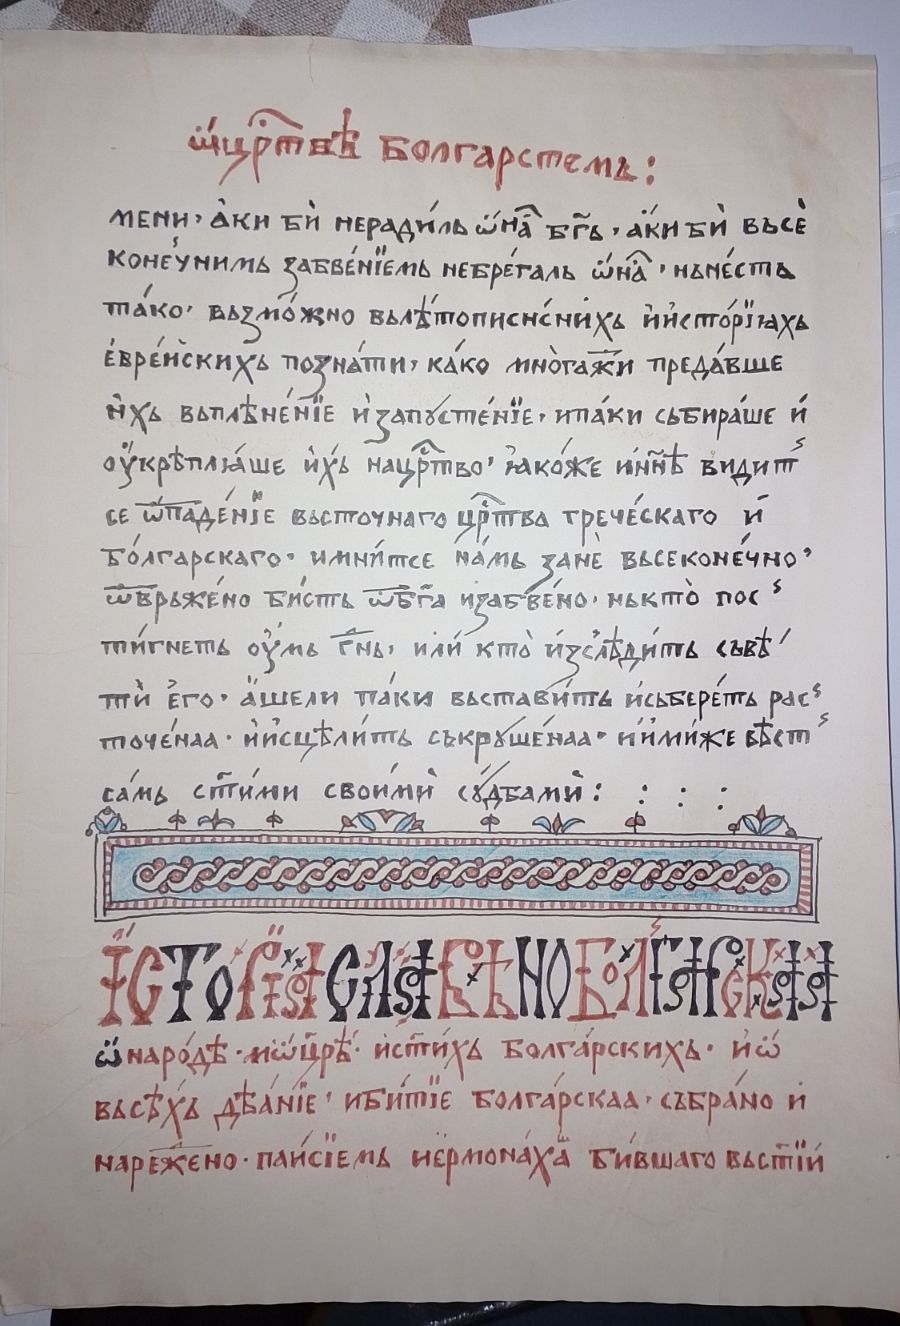 ѿцр҃твѣ болгарстемь:
мени, а́ки бѝ неради́ль ѡ҆на҃ бг҃ь, а҆́ки бѝ въсѐ
коне́ꙋнимь забве́нїемь небре́галь ѡ҆на҃, нъне́сть
та́ко, възмо́жно вълѣ́тописнс́ни́хь и҆и҆сто́рїꙗхь
е҆вре́йских позна́ти, ка́ко мно̀га҃жи преда́вше
и҆̀хь въплѣне́нїе и҆запꙋсте́нїе, ипа́ки събира́ше и҆́
оу҆крѣплꙗ́ше и҆́хь нацр҃тво, ꙗ҆ко́же и҆н҃нѣ видит
се ѿпаде́нїе въсточнаго цр҃тва гре́ческаго и҆́
бо́лгарскаго, имни́тсе на́мь занѐ въсеконе́чно,
ѿврьже́но би́сть ѿбг҃а изабве́но, ньктѐ пос
ти́гнеть оу҆́мь г҃нь, или́ ктѐ и҆зслѣ́ди́ть съвѣ
тѝ е҆го, а҆́щели па́ки въстави́ть и҆сьбере́ть рас
точе́наа, и҆и҆сцѣли́ть съкрꙋше́наа, и҆и҆ми́же вѣст
са́мь ст҃и́ми свои́мѝ сꙋ́дбамѝ: : : :
І҆СТОРїꙖ СЛАВѢНОБОЛГАРСКАꙖ
ѡ҆ наро́дѣ, иѡ҆цр҃ѣ, и҆ст҃и́хь болга́рскихь, и҆ѡ҆
въсѣ́хь дѣа́нїе, иби́тїе болга́рскаа, събра́но и҆
наре҃жено, паи́сїемь и҆ермона́ха би́вшаго въст҃їи́